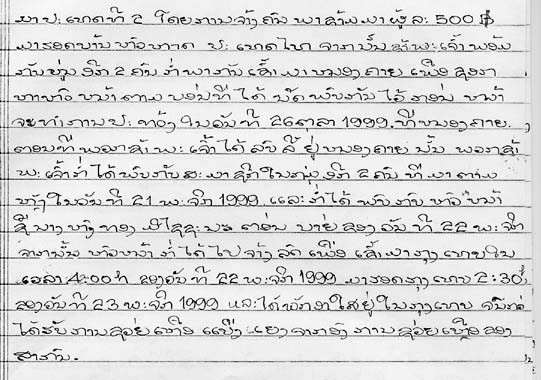 ມາປະເທດທີ 2 ໂດຍການຈ້າງຄົນພາຂ້າມມາຜູ້ລະ 500 ฿
ມາຮອດບ້ານ ປະເທດໄທ ຈາກນັ້ນຂ້າພະເຈົ້າພ້ອມ
ກັບ ອີກ 2 ຄົນ ກໍ່ພາກັນເຂົ້າມາໜອງຄາຍ ເພື່ອຊອກ
ຫາຫົວໜ້າຕາມບ່ອນທີ່ໄດ້ນັດພົບກັນໄວ້ກ່ອນໜ້າ
ຈະທໍາການປະທ້ວງໃນວັນທີ 26 ຕຸລາ 1999. ທີ່ໜອງຄາຍ.
ຕອນທີ່ພວກຂ້າພະເຈົ້າໄດ້ລົບລີ້ຢູ່ໜອງຄາຍນັ້ນ ພວກຂ້າ
ພະເຈົ້າກໍ່ໄດ້ພົບກັບສະມາຊິກໃນກຸ່ມອີກ 2 ຄົນ ທີ່ມາຕາມ
ຫຼັງໃນວັນທີ 21 ພະຈິກ 1999 ແລະກໍ່ໄດ້ພົບກັບຫົວໜ້າ
ຊື່ ນາງ ຕອນບ່າຍຂອງວັນທີ 22 ພະຈິກ
ຈາກນັ້ນຫົວໜ້າກໍ່ໄດ້ໄປຈ້າງລົດເພື່ອເຂົ້າມາກຸງເທບໃນ
ເວລາ 4:00 ຂອງວັນທີ 22 ພະຈິກ 1999 ມາຮອດກຸງເທບ 2:30
ຂອງວັນທີ 23 ພະຈິກ 1999 ແລະໄດ້ອາໃສຢູ່ໃນກຸງເທບ
ໄດ້ຮັບການຊ່ວຍເຫຼືອ ຈາກອົງການຊ່ວຍເຫຼືອຂອງ
ສາກົນ.